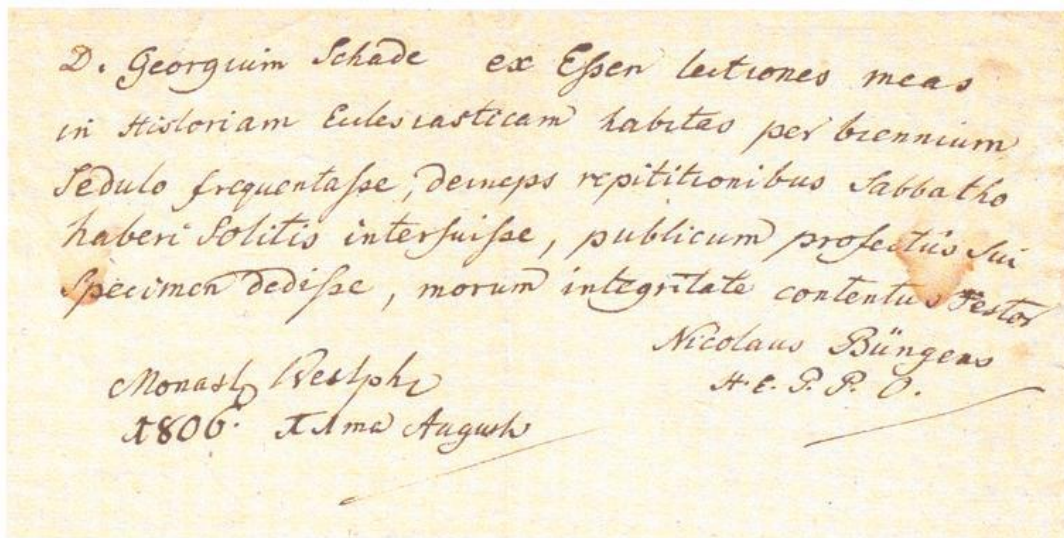 D. Georgium Schade ex Eſsen lectiones meas
in Historiam Ecclesiasticam habitas per biennium
Sedulo frequentaſse, deinceps repititionibus Sabbatho
haberi Solitis interfuiſse, publicum profectus Sui
Specimen dediſse, morum integritate contentus Testor
Nicolaus Büngens
H. E. P. P. O.
Monast. Westph.
1806. Augusti